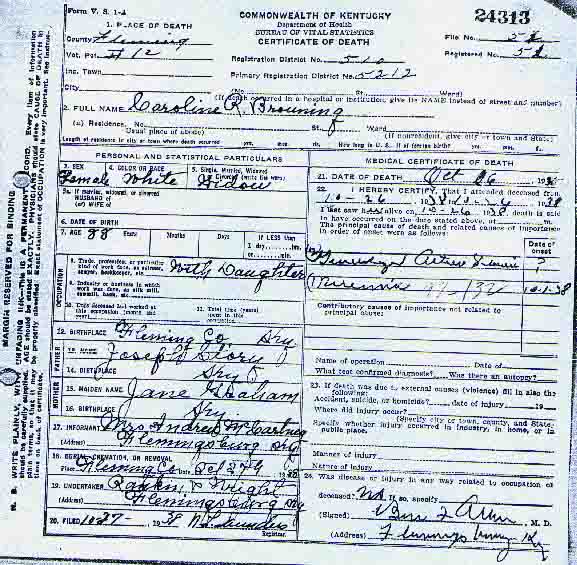 Form V. S. 1-A
COMMONWEALTH OF KENTUCKY
Department of Health
BUREAU OF VITAL STATISTICS
CERTIFICATE OF DEATH
24313
File No.
Registered No.
1. PLACE OF DEATH
County Fleming
Vot. Pct. # 12
Inc. Town
City
Registration District No. 510
Primary Registration District No. 5212
(No. St. Ward)
(If death occurred in a hospital or institution, give its NAME instead of street and number)
2. FULL NAME Caroline R. Browning
(a) Residence. No. St. Ward
(Usual place of abode) (If nonresident, give city or town and State)
Length of residence in city or town where death occurred yrs. mos. ds. How long in U. S. if of foreign birth? yrs. mos. ds.
PERSONAL AND STATISTICAL PARTICULARS
3. SEX Female
4. COLOR OR RACE White
5. Single, Married, Widowed or Divorced (write the word) Widow
5a. If married, widowed, or divorced
HUSBAND of
(or) WIFE of
6. DATE OF BIRTH
7. AGE 88 Years Months Days If LESS than 1 day, hrs. or min.
OCCUPATION
8. Trade, profession, or particular kind of work done, as spinner, sawyer, bookkeeper, etc. With Daughter
9. Industry or business in which work was done, as silk mill, sawmill, bank, etc.
10. Date deceased last worked at this occupation (month and year)
11. Total time (years) spent in this occupation
12. BIRTHPLACE Fleming Co Ky
FATHER
13. NAME Joseph Story
14. BIRTHPLACE Ky
MOTHER
15. MAIDEN NAME Jane Graham
16. BIRTHPLACE Ky
17. INFORMANT Mrs Andrew McCartney
(Address) Flemingsburg Ky
18. BURIAL, CREMATION, OR REMOVAL
Place Fleming Co Date Oct 27
19. UNDERTAKER Rankin & Wright
(Address) Flemingsburg Ky
20. FILED 10-27 1938
Registrar.
MEDICAL CERTIFICATE OF DEATH
21. DATE OF DEATH Oct 26 1938
22. I HEREBY CERTIFY, That I attended deceased from
10-26 1938 10-26 1938
I last saw alive on 10-26 1938 death is said
to have occurred on the date stated above, at m.
The principal cause of death and related causes of importance
in order of onset were as follows:
Date of onset
?
10-1-38
Contributory causes of importance not related to
principal cause:
Name of operation Date of
What test confirmed diagnosis? Was there an autopsy?
23. If death was due to external causes (violence) fill in also the
following:
Accident, suicide, or homicide? date of injury 19
Where did injury occur?
(Specify city or town, county, and State)
Specify whether injury occurred in industry, in home, or in
public place.
Manner of injury
Nature of injury
24. Was disease or injury in any way related to occupation of
deceased? No If so, specify
(Signed) M. D.
(Address) Flemingsburg Ky
MARGIN RESERVED FOR BINDING